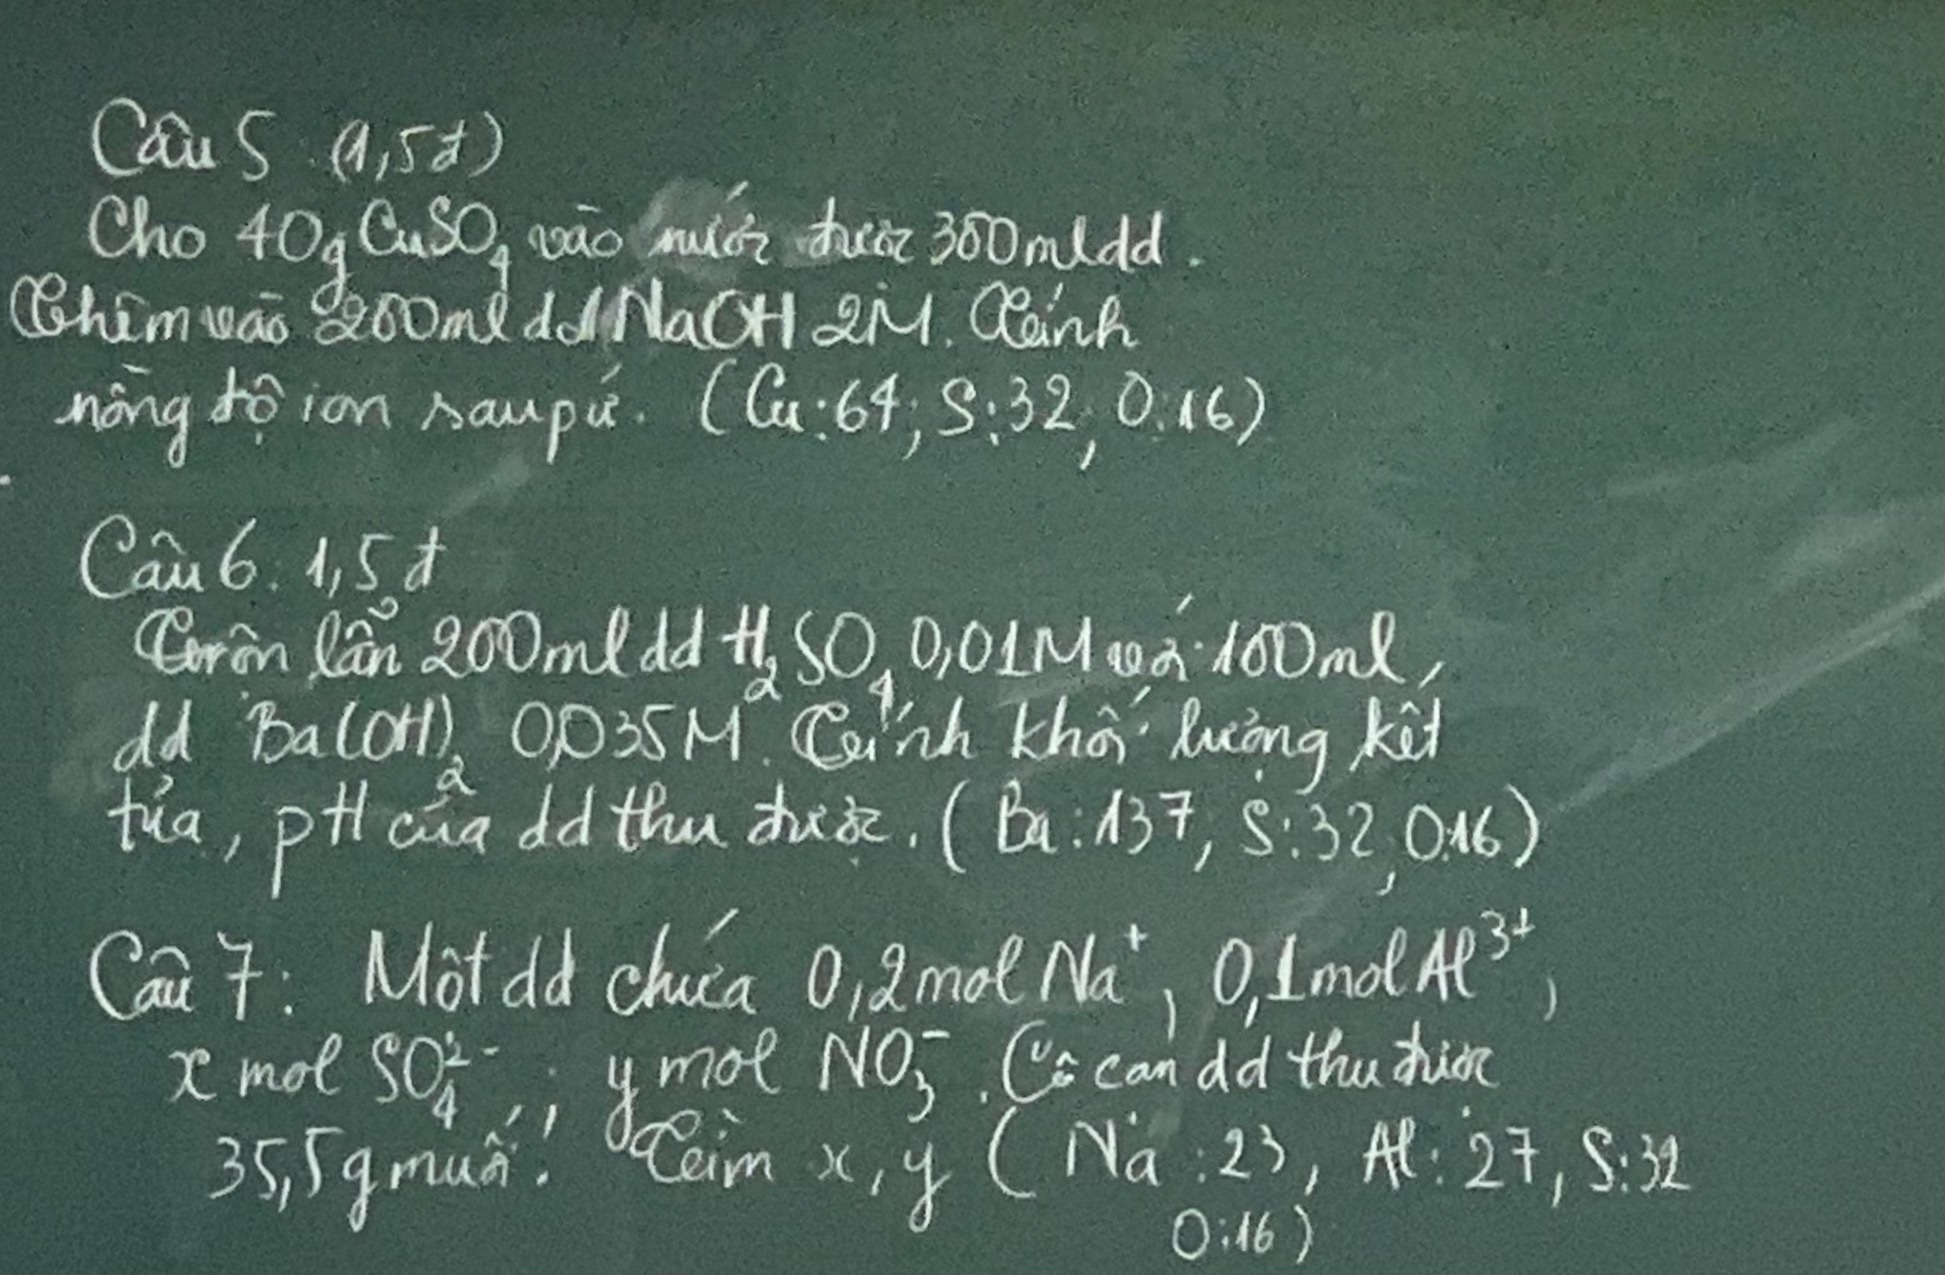 Câu 5 (1,5đ)
Cho 40g CuSO4 vào nước được 300ml dd.
Thêm vào 200ml dd NaOH 2M. Tính
nồng độ ion sau pứ. (Cu:64; S:32, O:16)
Câu 6: 1,5đ
Trộn lẫn 200ml dd H2SO4 0,01M và 100ml
dd Ba(OH)2 0,035M. Tính khối lượng kết
tủa, pH của dd thu được. (Ba:137, S:32, O:16)
Câu 7: Một dd chứa 0,2mol Na+, 0,1mol Al3+,
x mol SO4 2-, y mol NO3-. Cô cạn dd thu được
35,5g muối. Tìm x, y (Na:23, Al:27, S:32
O:16)